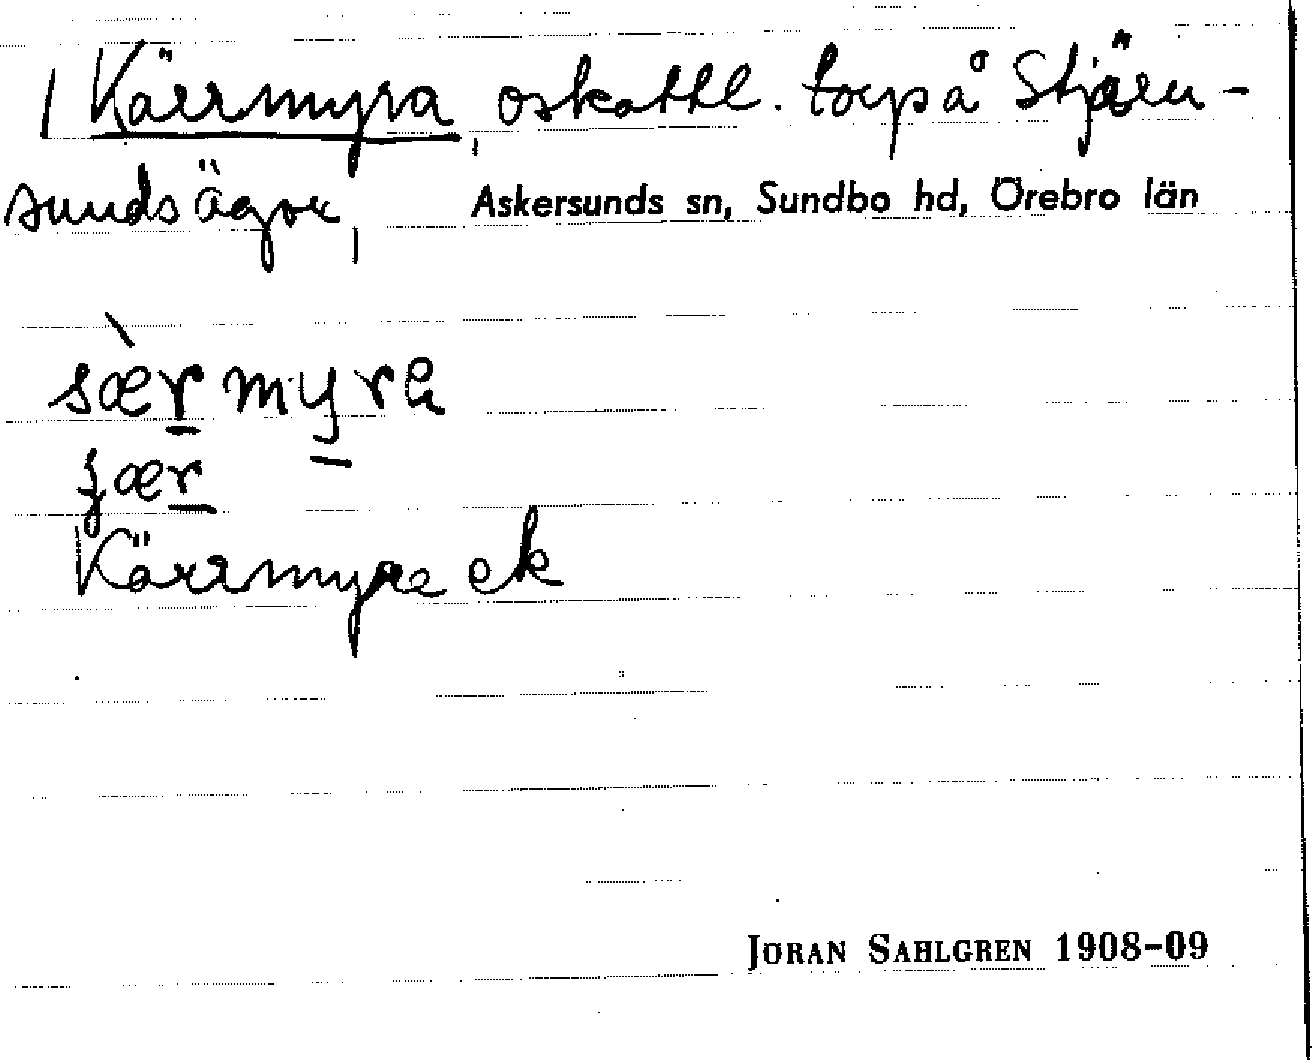 Kärrmyra, oskattl. torp på Stjärn-
sunds ägor, Askersunds sn, Sundbo hd, Örebro län
særmyra
jær
Kärrmyre ek
JORAN SAHLGREN 1908-09